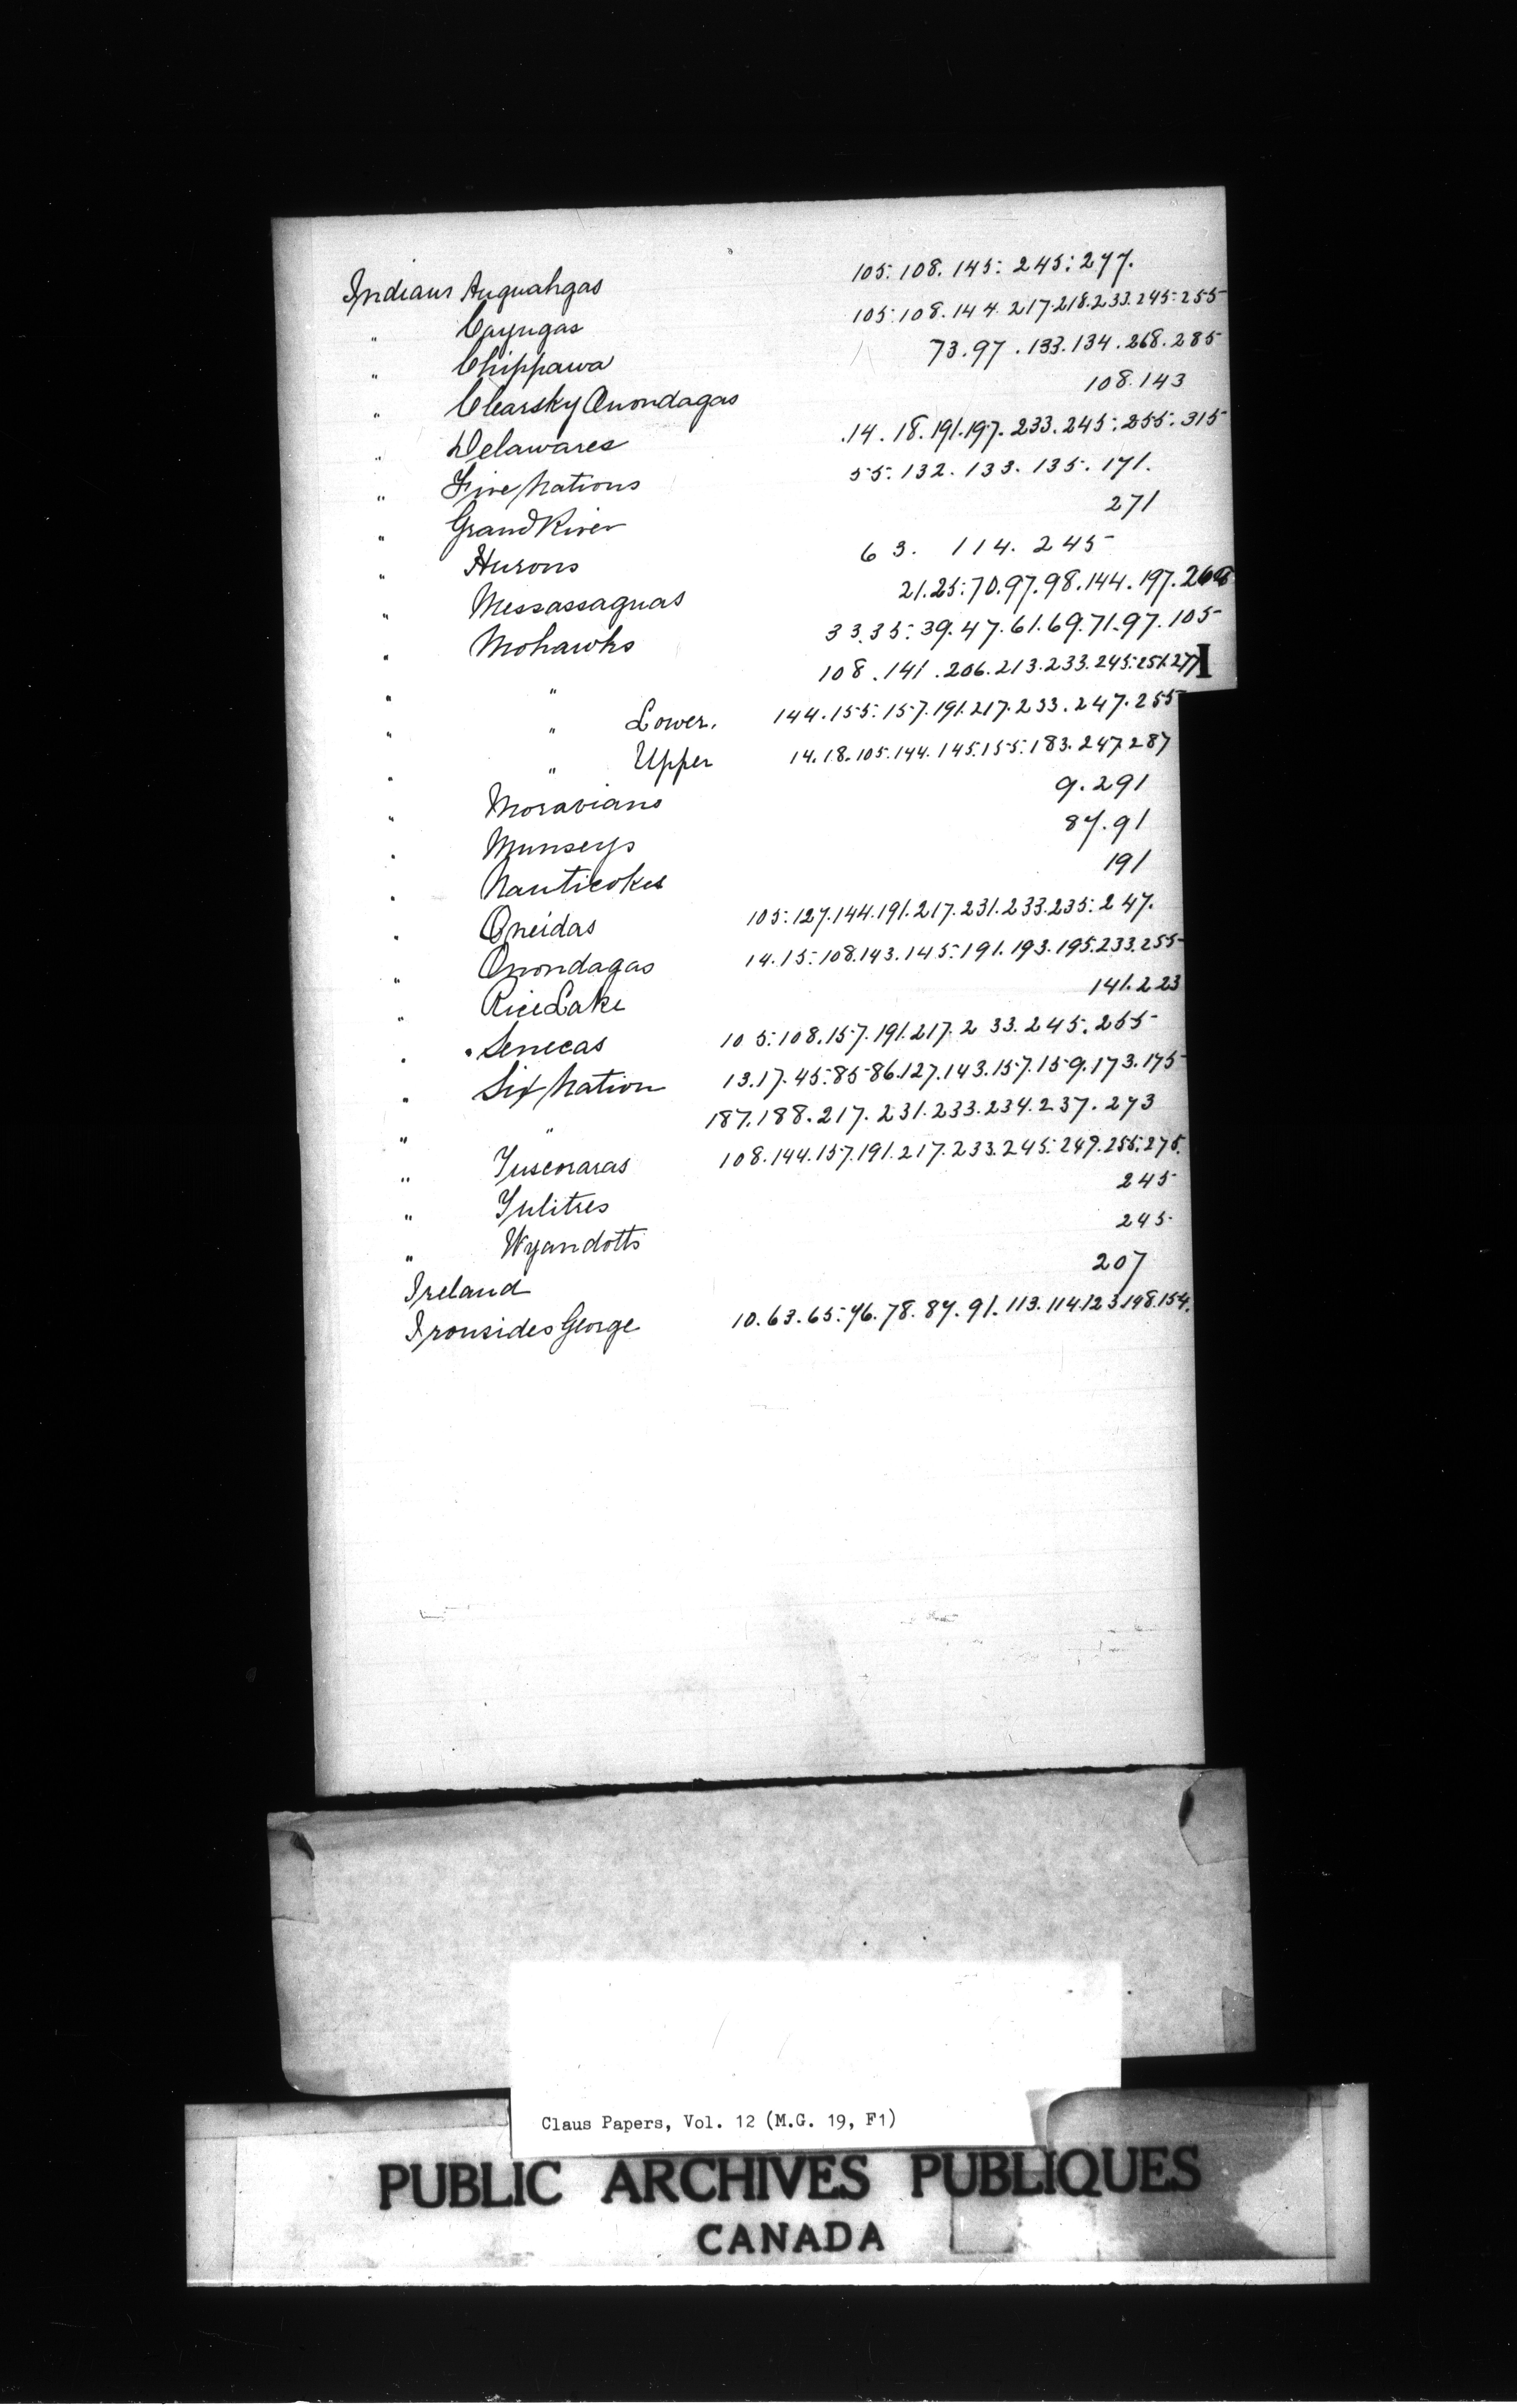 Indians Auguahgas 105. 108. 145. 245. 277.
" Cayugas 105. 108. 144. 217. 218. 233. 245. 255
" Chippawa 73. 97. 133. 134. 268. 285
" Clearsky Onondagas 108. 143
" Delawares 14. 18. 191. 197. 233. 245. 255. 315
" Five Nations 55. 132. 133. 135. 171.
" Grand River 271
" Hurons 63. 114. 245
" Messassaguas 21. 25. 70. 97. 98. 144. 197.
" Mohawks 33. 35. 39. 47. 61. 69. 71. 97. 105
" " 108. 141. 206. 213. 233. 245. 251. 277
I
" " Lower. 144. 155. 157. 191. 217. 233. 247. 255
" " Upper 14. 18. 105. 144. 145. 155. 183. 247. 287
" Moravians 9. 291
" Munseys 87. 91
" Nanticokes 191
" Oneidas 105. 127. 144. 191. 217. 231. 233. 235. 247.
" Onondagas 14. 15. 108. 143. 145. 191. 193. 195. 233. 255
" Rice Lake 141. 223
" Senecas 105. 108. 157. 191. 217. 233. 245. 255
" Six Nation 13. 17. 45. 85. 86. 127. 143. 157. 159. 173. 175
" " 187. 188. 217. 231. 233. 234. 237. 273
" Tuscoraras 108. 144. 157. 191. 217. 233. 245. 249. 255. 275.
" Tulitres 245
" Wyandotts 245
Ireland 207
Ironsides George 10. 63. 65. 76. 78. 87. 91. 113. 114. 123. 148. 154.
Claus Papers, Vol. 12 (M.G. 19, F1)
PUBLIC ARCHIVES PUBLIQUES
CANADA